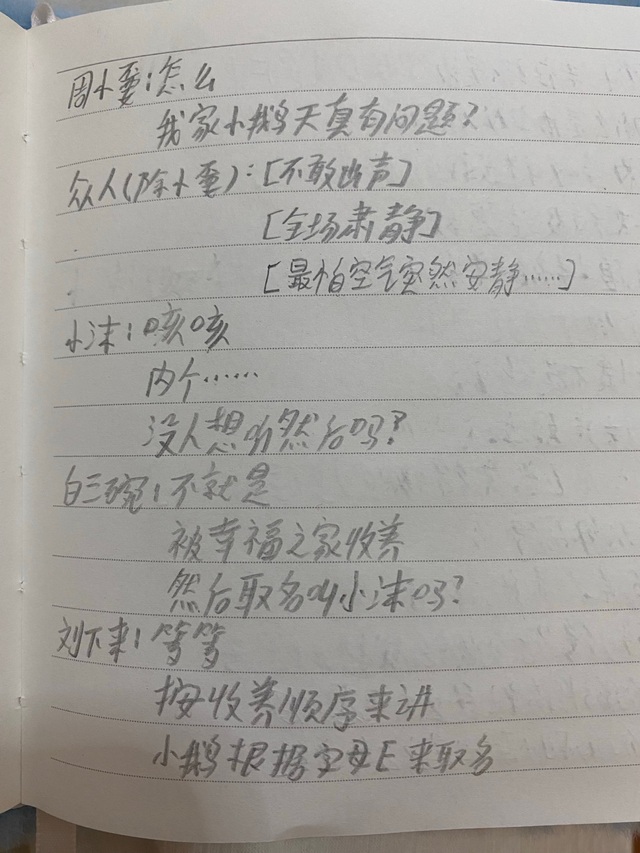 周小蛮：怎么
我家小鹅天真有问题？
众人(除小蛮)：[不敢出声]
[全场肃静]
[最怕空气突然安静……]
小沫：咳咳
内个……
没人想听然后吗？
白三碗：不就是
被幸福之家收养
然后取名叫小沫吗？
刘下来：等等
按收养顺序来讲
小鹅根据字母E来取名